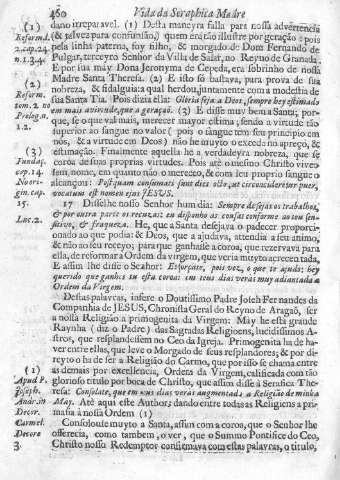 460 Vida da Seraphica Madre
dano irreparavel. (1) Desta maneyra falla para nossa advertencia
(1) Reform. l. 2. cap. 24. n. 1. 3. 4.
(& talvez para confusaõ,) quem era taõ illustre por geraçaõ: pois
pela linha paterna, foy filho, & morgado de Dom Fernando de
Pulgar, terceyro Senhor da Villa de Salar, no Reyno de Granada.
E por sua mãy Dona Jeronyma de Cepeda, era sobrinho de nossa
Madre Santa Theresa. (2) E isto só bastava, para prova de sua
(2) Reform. tom. 2. no Prolog. n. 1. 2.
nobreza, & fidalguia: a qual herdou, juntamente com a modestia de
sua Santa Tia. Pois dizia ella: Gloria seja a Deos, sempre hey estimado
em mais a virtude, que a geraçaõ. (3) E disse muy bem a Santa; porque,
se o que val mais, merecer mayor estima, sendo a virtude taõ
superior ao sangue no valor (pois o sangue tem seu principio em
nòs, & a virtude em Deos) não he muyto o exceda no apreço, &
estimaçaõ. Finalmente aquella he a verdadeyra nobreza, que se
(3) Fundaç. cap. 14. No orig. gen. cap. 15.
coroa de suas proprias virtudes. Pois até o mesmo Christo vivo
tem nome, em quanto não o merece, & com seu proprio sangue o
alcançou: Postquam consumati sunt dies octo, ut circuncideretur puer,
vocatum est nomen ejus JESUS.
Luc. 2.
17 Disselhe nosso Senhor hum dia: Sempre desejas os trabalhos,
& por outra parte os recusas: eu disponho as cousas conforme ao teu sensitivo,
& fraqueza. He, que a Santa desejava o padecer proporcionado
ao que podia: & Deos, que a ajudava, attendia a seu animo,
& não ao seu receyo; para que ganhasse a coroa, que reservava para
ella, de reformar a Ordem da virgem, que veria muyto acrecentada.
E assim lhe disse o Senhor: Esforçate, pois vez, o que te ajudo; hey
querido que ganhes tu esta coroa: em teus dias veras muy adiantada a
Ordem da Virgem.
Destas palavras, infere o Doutissimo Padre Joseh Fernandes da
Companhia de JESUS, Chronista Geral do Reyno de Aragaõ, ser
a nossa Religiaõ a primogenita da Virgem: Mãy he està grande
Raynha (diz o Padre) das Sagradas Religioens, lucidissimos Astros,
que resplandessem no Ceo da Igreja. Primogenita ha de haver
entre ellas, que leve o Morgado de seus resplandores; & por direyto
o ha de ser a Religiaõ do Carmo, que por isso se chama entre
(1) Apud P. Joseph. Andr. in Decor. Carmel. Decoro 3.
as demais por excellencia, Ordem da Virgem, calificada com taõ
glorioso titulo por boca de Christo, que assim disse à Serafica Theresa:
Consolate, que em teus dias veras augmentada a Religiaõ de minha
May. Atè aqui este Author; dando entre todas as Religioens a primasia
à nossa Ordem (1)
Consolouse muyto a Santa, assim com a coroa, que o Senhor lhe
offerecia, como tambem, o ver, que o Summo Pontifice do Ceo,
Christo nosso Redemptor confirmava com estas palavras, o titulo,